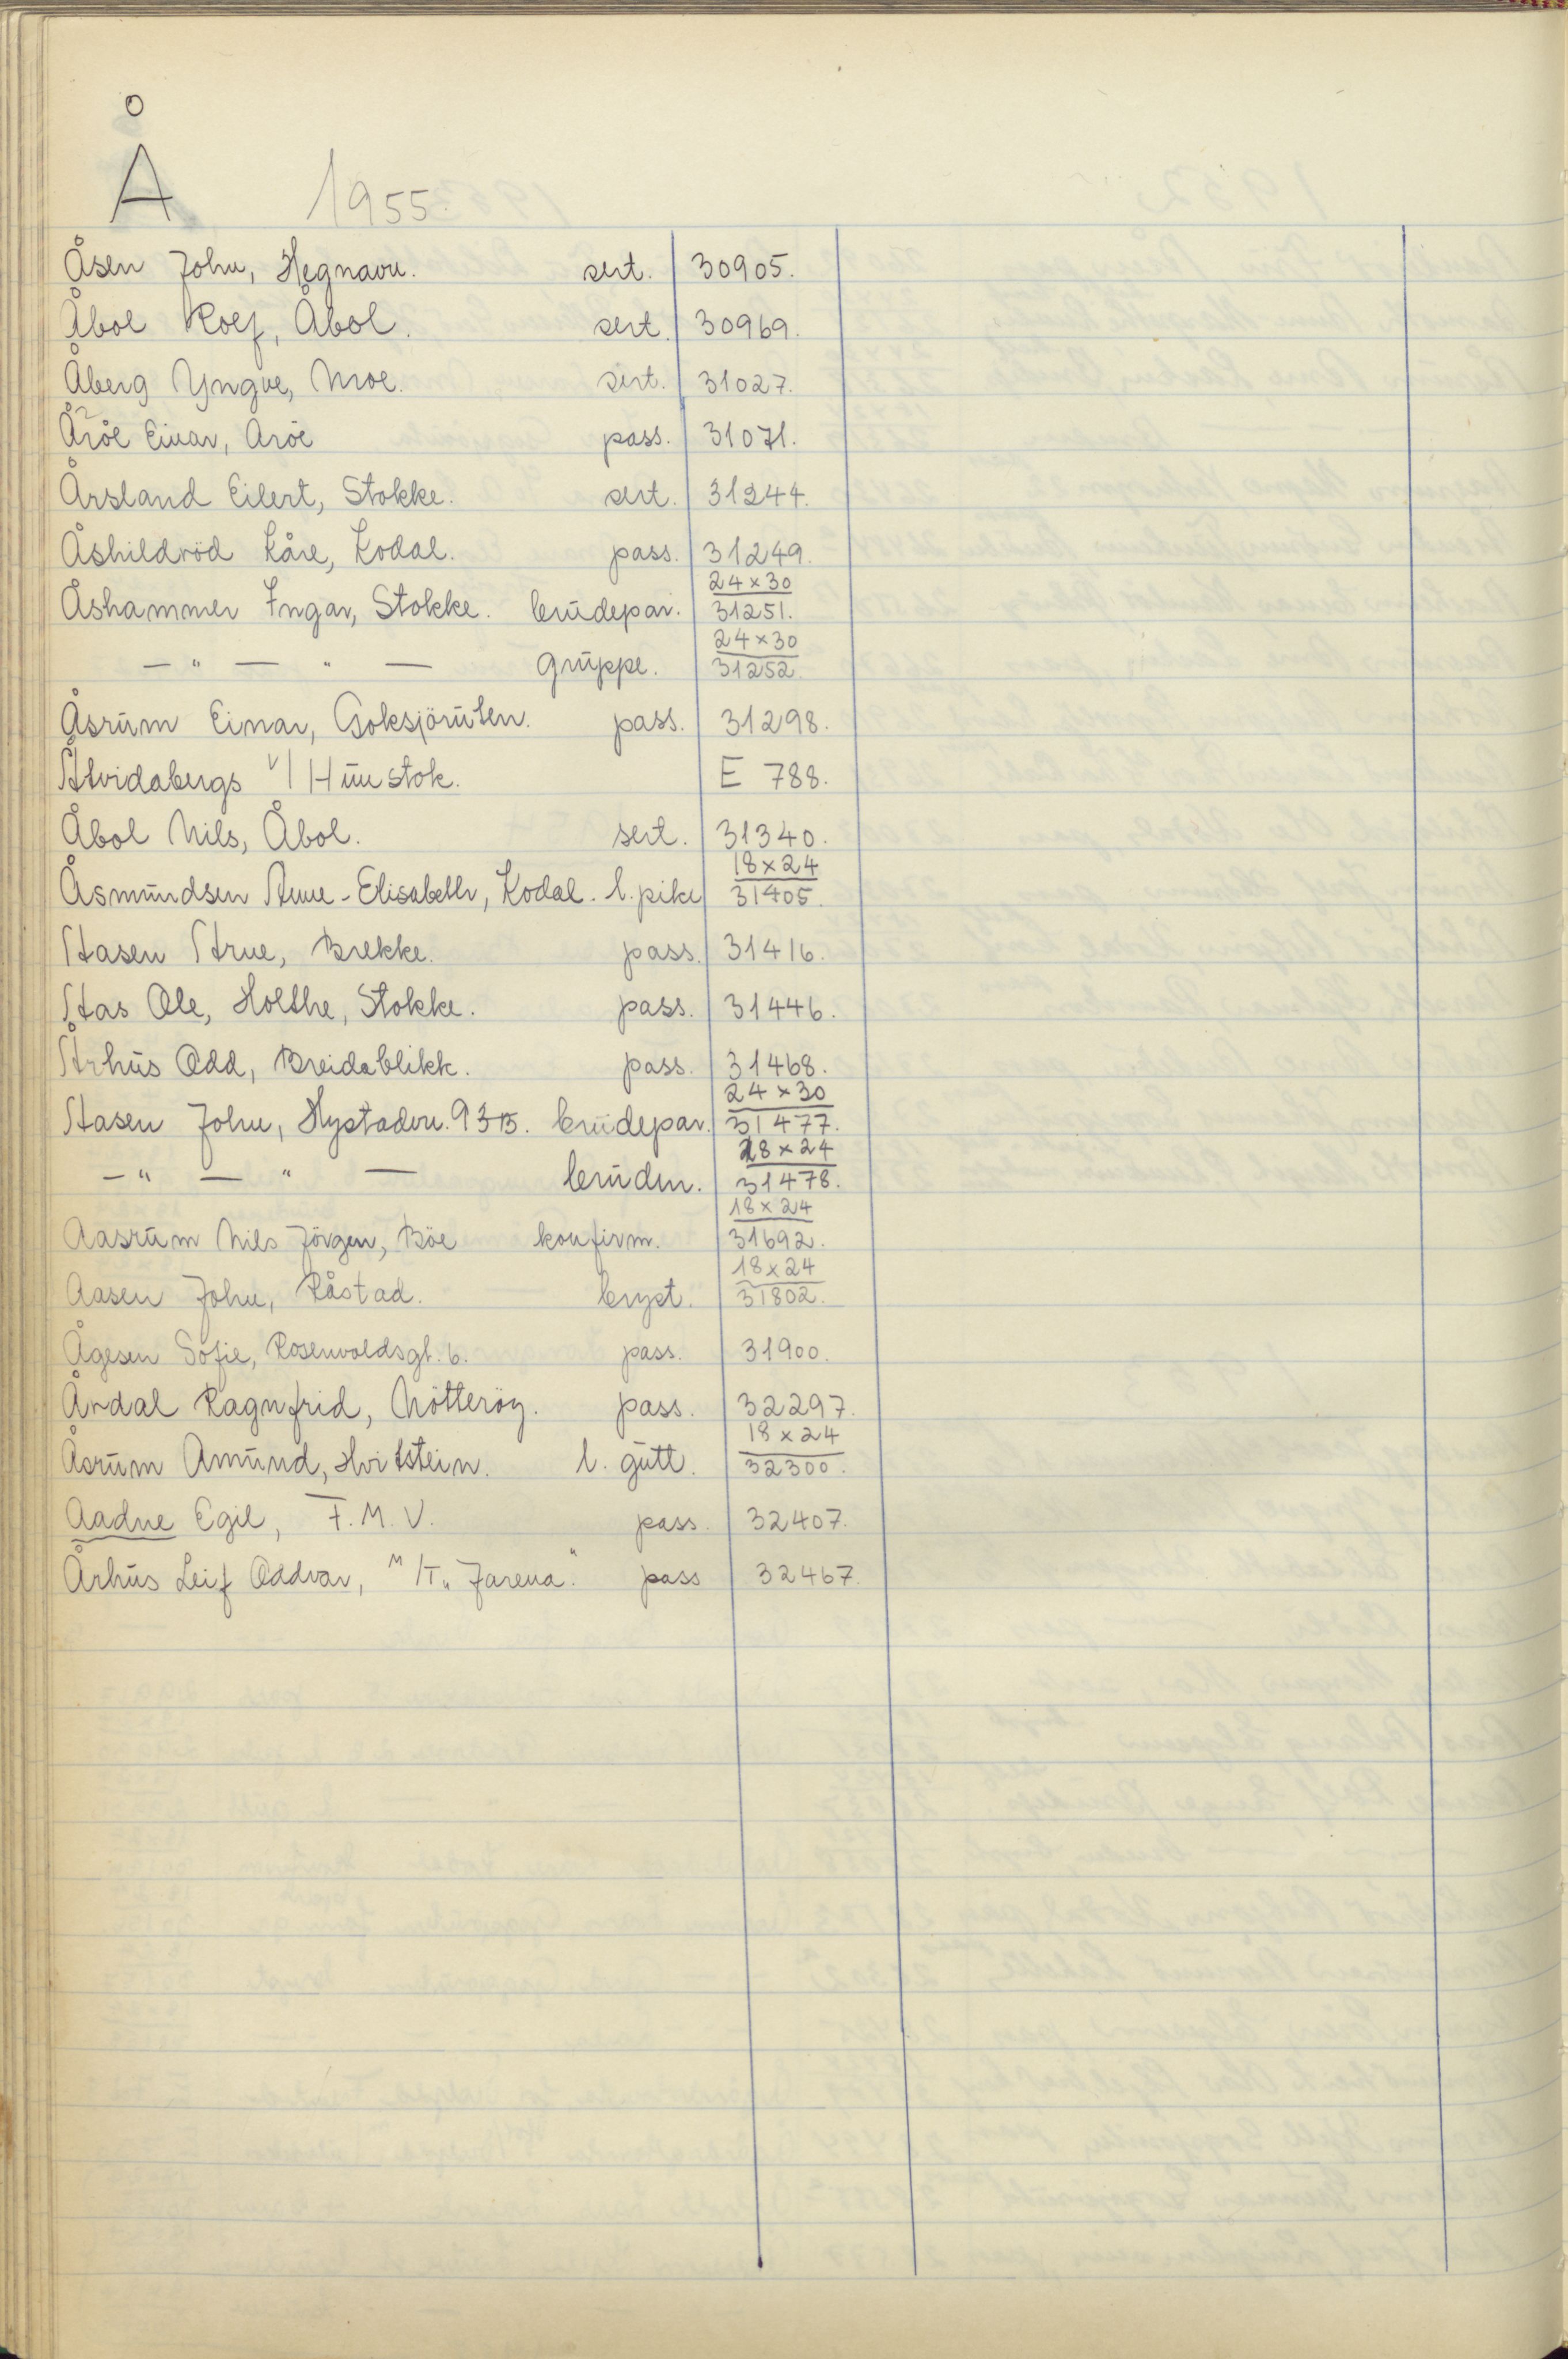 Å 1955.
Åsen John, Hegnavn. sert. 30905.
Åbol Rolf, Åbol. sert. 30969.
Åberg Yngve, Moe. sert. 31027.
Årøe Einar, Arøe pass. 31071.
Årsland Eilert, Stokke. sert. 31244.
Åshildröd Kåre, Kodal. pass. 31249.
Åshammer Ingar, Stokke. brudepar. 24x30 31251.
— " — " — gruppe. 24x30 31252.
Åsrum Einar, Goksjöruten. pass. 31298.
Åtvidabergs v/ Hunstok. E 788.
Åbol Nils, Åbol. sert. 31340.
Åsmundsen Anne-Elisabeth, Kodal. l. pike 18x24 31405.
Aasen Arne, Brekke. pass. 31416.
Aas Ole, Holthe, Stokke. pass. 31446.
Århus Odd, Breidablikk. pass. 31468.
Aasen John, Hystadvn. 93B. brudepar. 24x30 31477.
— " — " — bruden. 18x24 31478.
Aasrum Nils Jörgen, Böe konfirm. 18x24 31692.
Aasen John, Råstad. bryst. 18x24 31802.
Ågesen Sofie, Rosenvoldsgt. 6. pass. 31900.
Årdal Ragnfrid, Nötteröy. pass. 32297.
Åsrum Amund, Hvitstein. l. gutt. 18x24 32300.
Aadne Egil, F.M.V. pass. 32407.
Århus Leif Oddvar, M/T „Jarena" pass 32467.